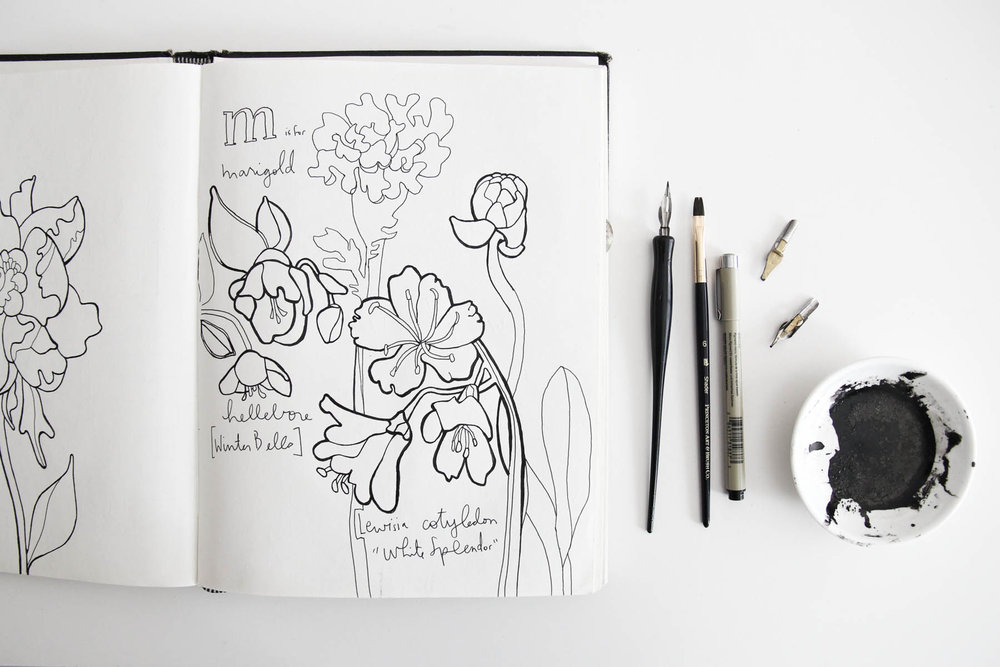 m is for
marigold
hellebore
[Winter Bells]
[Lewisia cotyledon
"White Splendor"
6
Shader
PRINCETON ART & BRUSH CO.